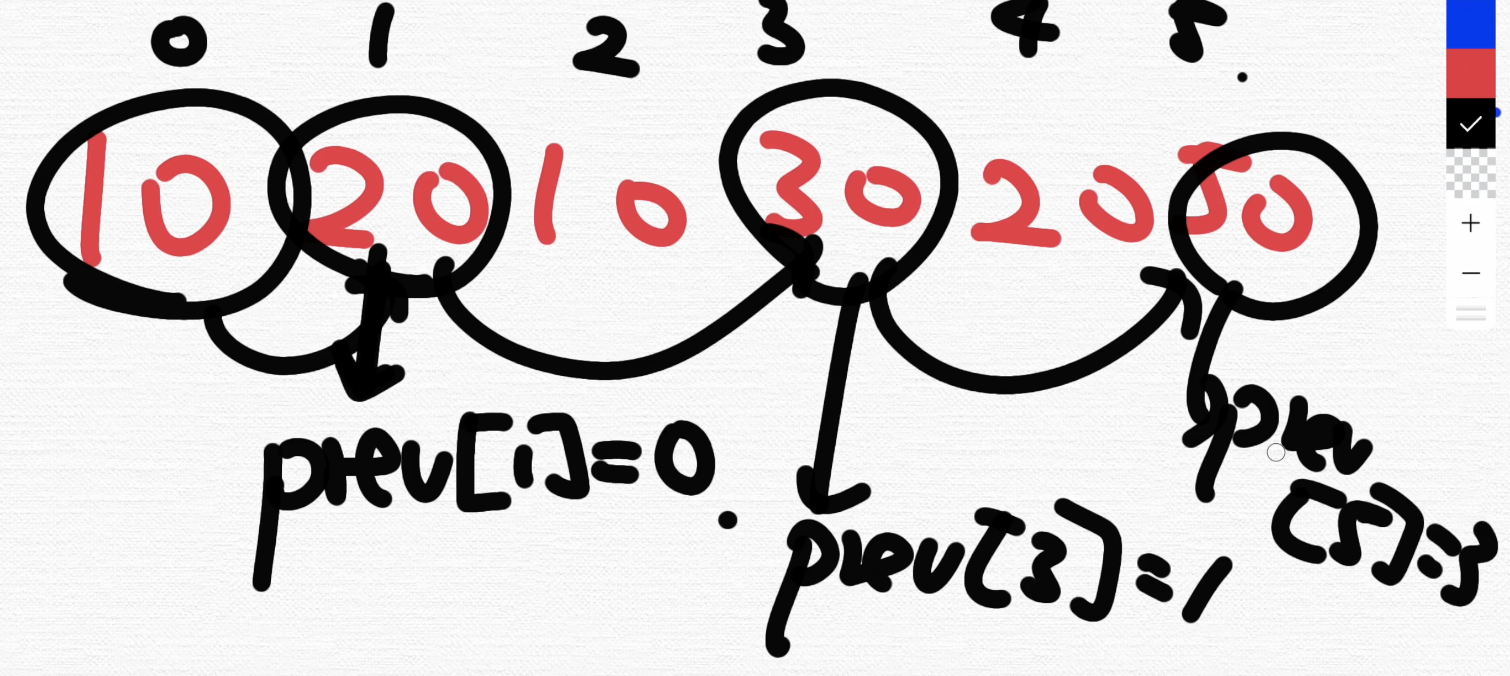 0 1 2 3 4 5
10 20 10 30 20 50
prev[1]=0
prev[3]=1
prev
[5]=3